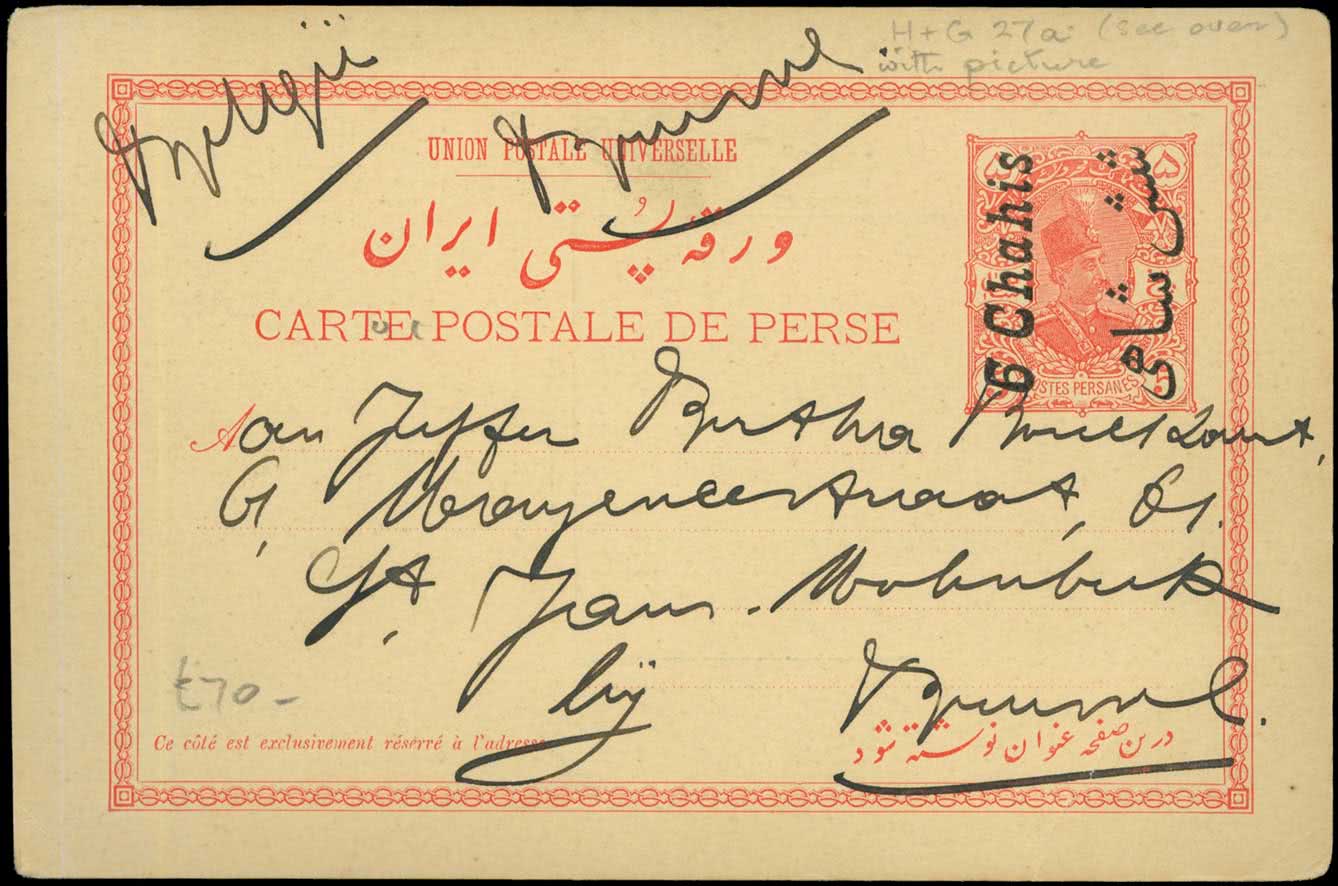 H+G 27a (see over)
with picture
België
Brussel
UNION POSTALE UNIVERSELLE
ورقه پستی ایران
CARTE POSTALE DE PERSE
۵ ۵
6 Chahis
شش شاهی
POSTES PERSANES
5
Aan Juffer Bertha
G,
St. Jans. Molenbeek
bij Brussel.
£70-
Ce côté est exclusivement réservé à l'adresse
درین صفحه عنوان نوشته شود